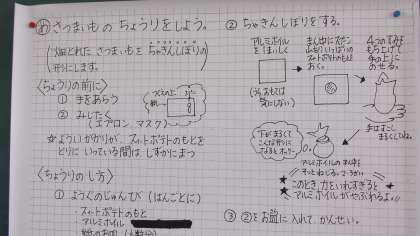 め さつまいもの ちょうりをしよう。
畑でとれた さつまいもを ちゃきんしぼりの
形にします。
〈ちょうりの前に〉
① 手をあらう
② みじたく
(エプロン、マスク)
☆ようい がかりが スイートポテトのもとを
とりに いっている間は しずかにまつ
〈ちょうりのし方〉
① ようぐのじゅんび (はんごとに)
・スイートポテトのもと
・アルミホイル
② ちゃきんしぼりをする。
アルミホイル
を
まん中に
スプーン
いっぱいの
スイートポテトのもとを
おく。
4つのすみを
もち上げて
手の上に
のせる。
下がまるくて
こんな形に
なるとオッケー
アルミホイルの
★このとき、力をいれすぎると★
アルミホイルがやぶれるよ
③ ②をお皿に入れて、かんせい。